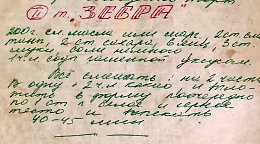 II т. "ЗЕБРА"
200г. сл. масла или марг. 2 ст. см
таны 2 ст. сахара 6 яиц, 3 ст.
муки, соли немного,
1 ч.л. соды гашенной уксусом.
Всё смешать: на 2 части
В одну + 2 ч.л. какао и выло-
жить в форму поочередно
по 1 ст л белое и черное
тесто и выпекать
40-45 мин